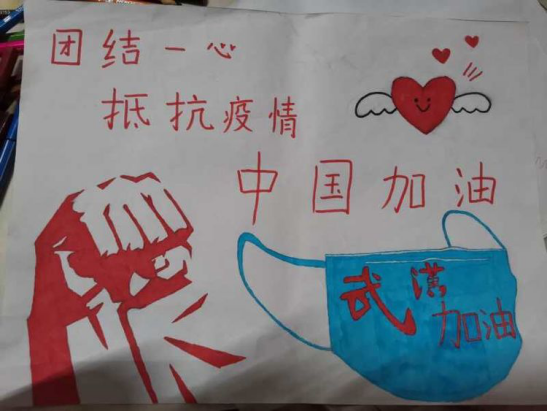 团结一心
抵抗疫情
中国加油
武漢
加油